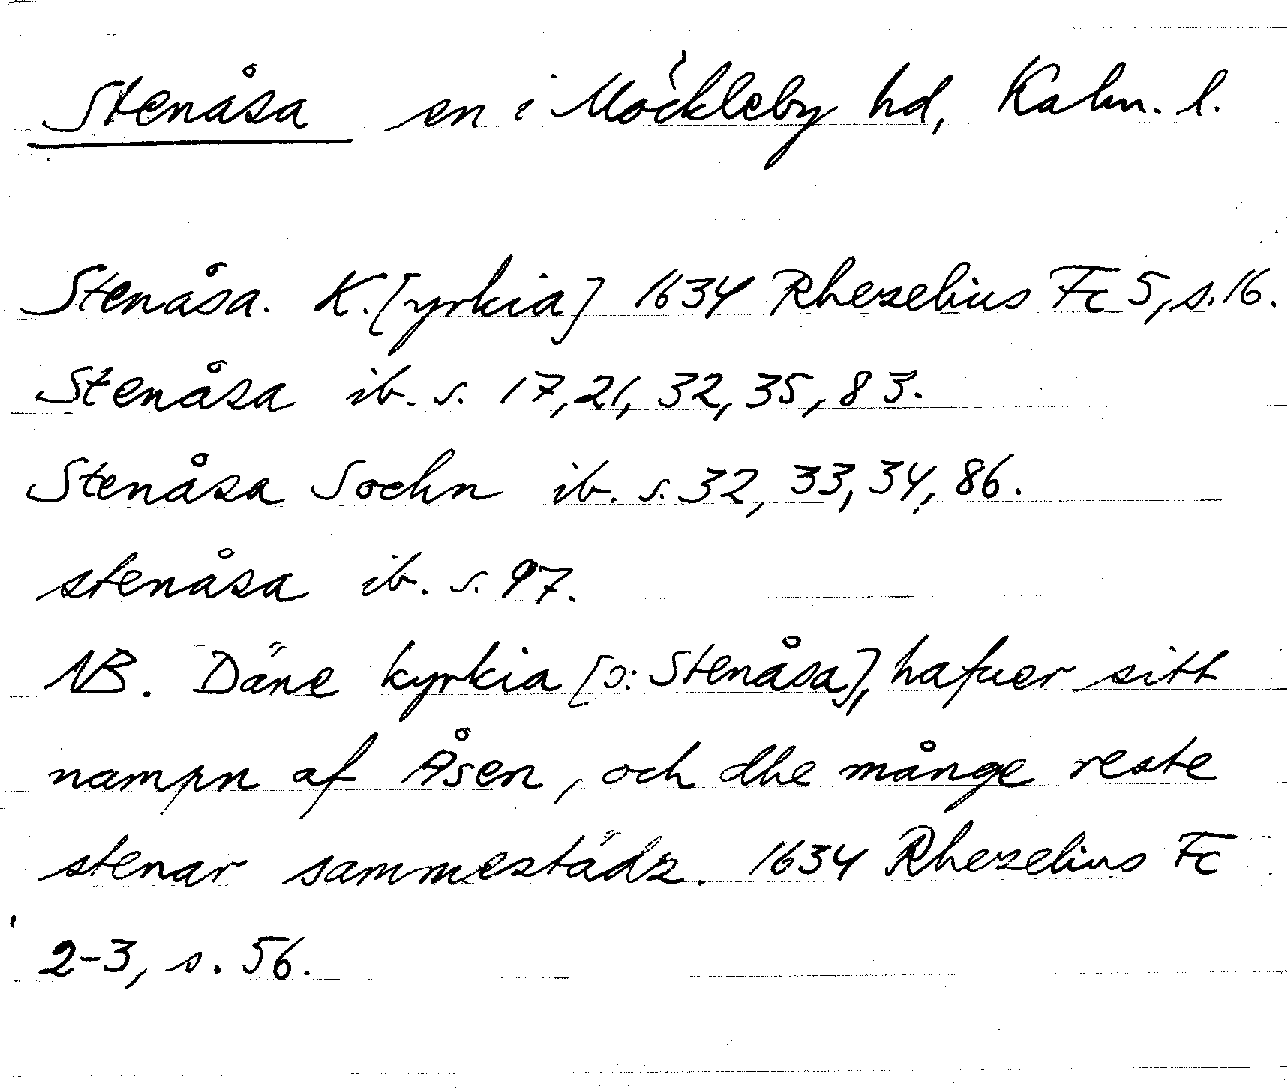 Stenåsa sn i Möckleby hd, Kalm. l.
Stenåsa. K.[yrkia] 1634 Rhezelius Fc 5, s. 16.
Stenåsa ib. s. 17, 21, 32, 35, 83.
Stenåsa Sochn ib. s. 32, 33, 34, 86.
stenåsa ib. s. 97.
NB. Däne kyrkia [ɔ: Stenåsa], hafuer sitt
nampn af Åsen, och dhe månge reste
stenar sammestädz. 1634 Rhezelius Fc
2-3, s. 56.